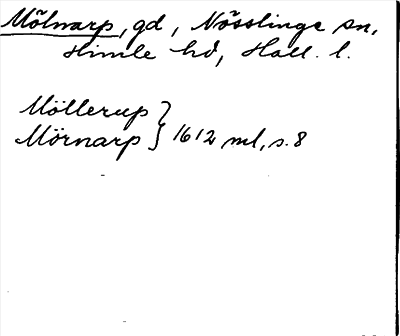 Mölnarp, gd, Nösslinge sn,
Himle hd, Hall. l.
Möllerup
Mörnarp } 1612 ml, s. 8